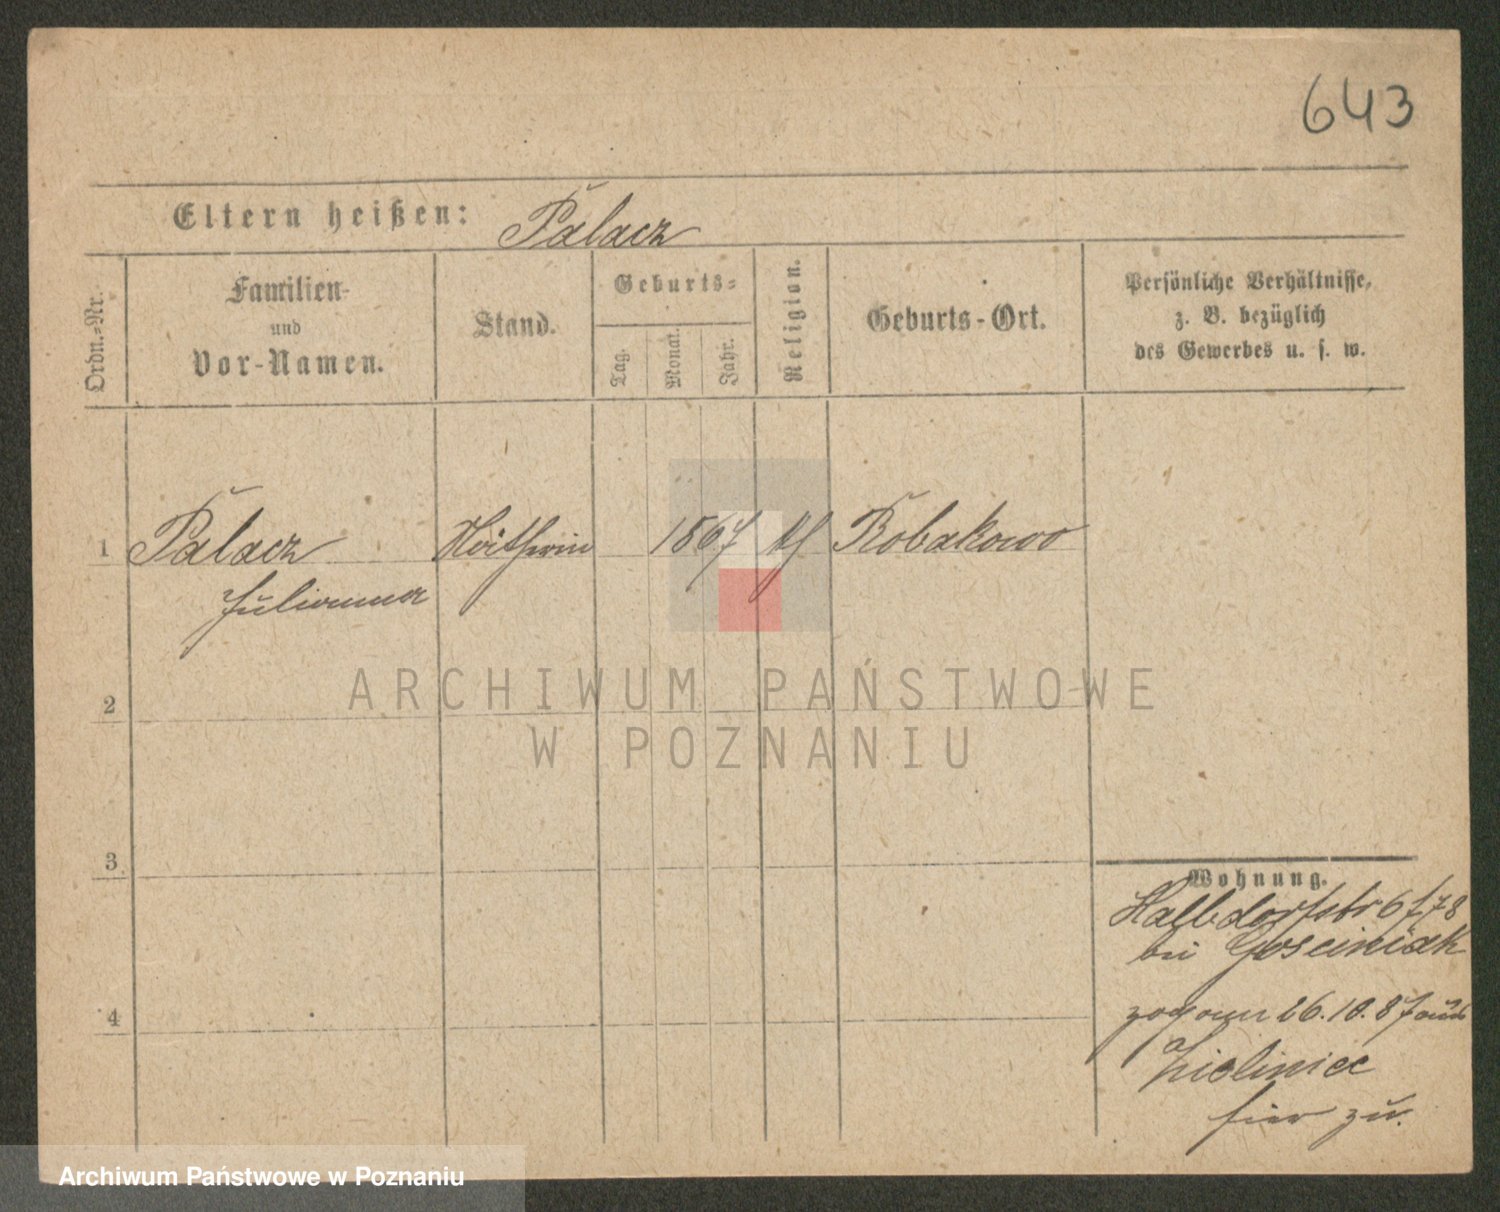 643
Eltern heißen: Palacz
Ordn.-Nr.
Familien-
und
Vor-Namen.
Stand.
Geburts-
Tag.
Monat.
Jahr.
Religion.
Geburts-Ort.
Persönliche Verhältnisse,
z. B. bezüglich
des Gewerbes u. s. w.
1 Palacz 1867 Robakowo
Julianna
ARCHIWUM PAŃSTWOWE
W POZNANIU
2
3
4
Wohnung.
Halbdorfstr 6/78
bei Gosciniak
zog am 26.10.87 aus
hier zu.
Archiwum Państwowe w Poznaniu